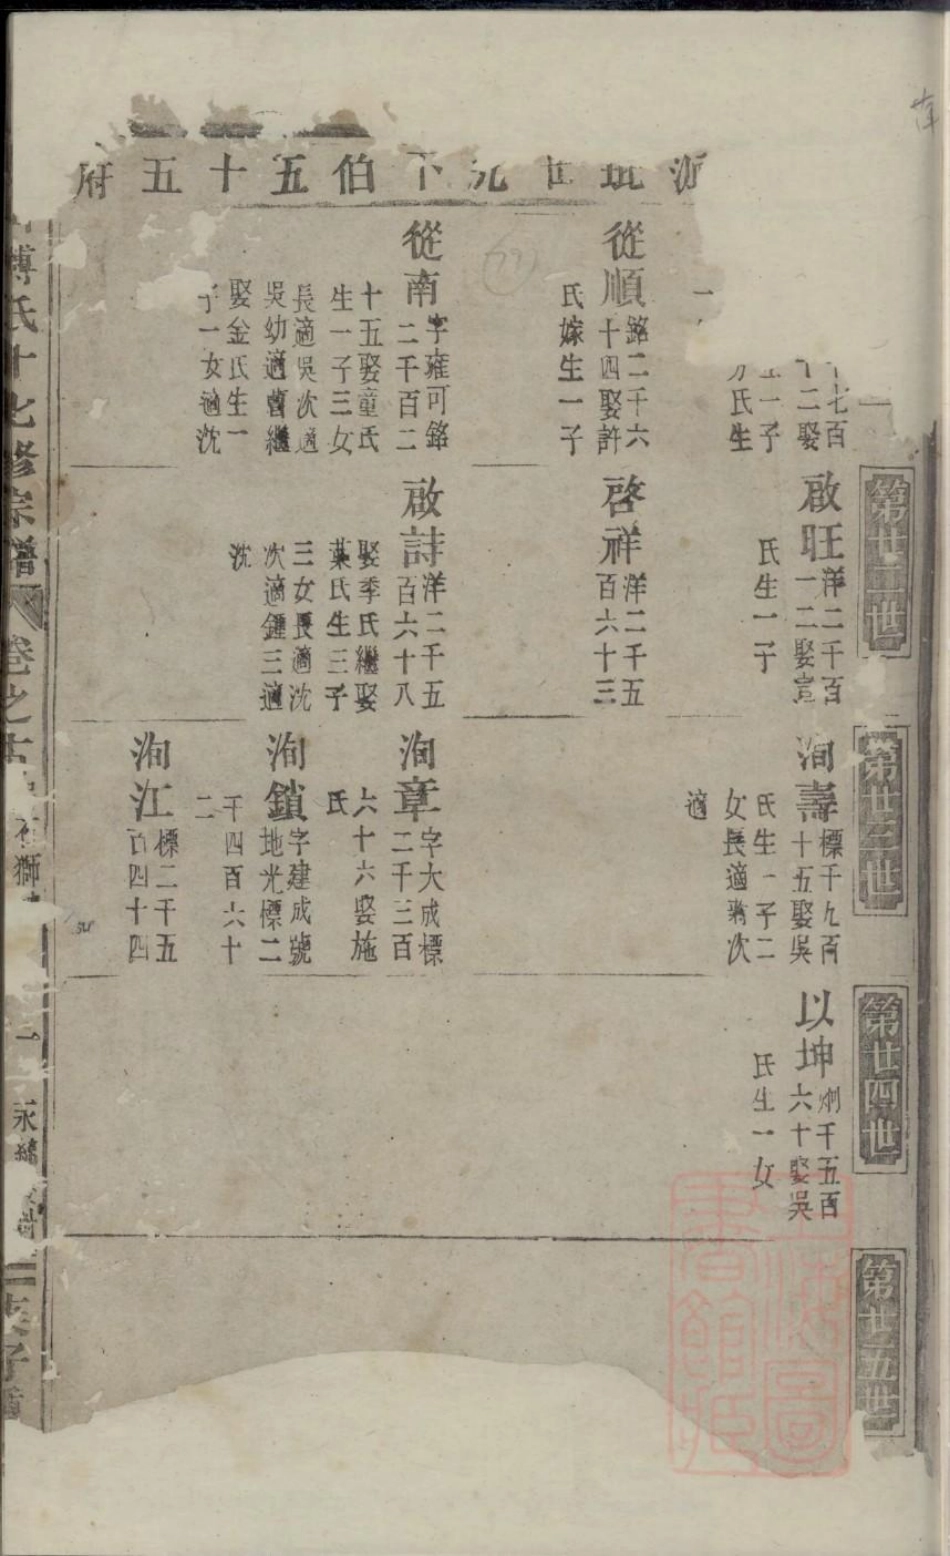 府五十五伯五下
第廿二世
第廿三世
第廿四世
第廿五世
七百
二娶
一子
氏生
從順
銘二千六
十四娶許
氏嫁生一子
從南
字雍可銘
二千百二
十五娶童氏
生一子三女
長適吳次適
吳幼適曹繼
娶金氏生一
子一女適沈
啟旺
洋二千百
一二娶宣
氏生一子
啓祥
洋二千五
百六十三
啟詩
洋二千五
百六十八
娶季氏繼娶
葉氏生三子
三女長適沈
次適鍾三適
沈
洵壽
標千九百
十五娶吳
氏生一子二
女長適翁次
適
洵章
字大成標
二千三百
六十六娶施
氏
洵鎖
字建成號
地光標二
千四百六十
二
洵江
標二千五
百四十四
以坤
炯千五百
六十娶吳
氏生一女
傅氏十七修宗譜
卷之